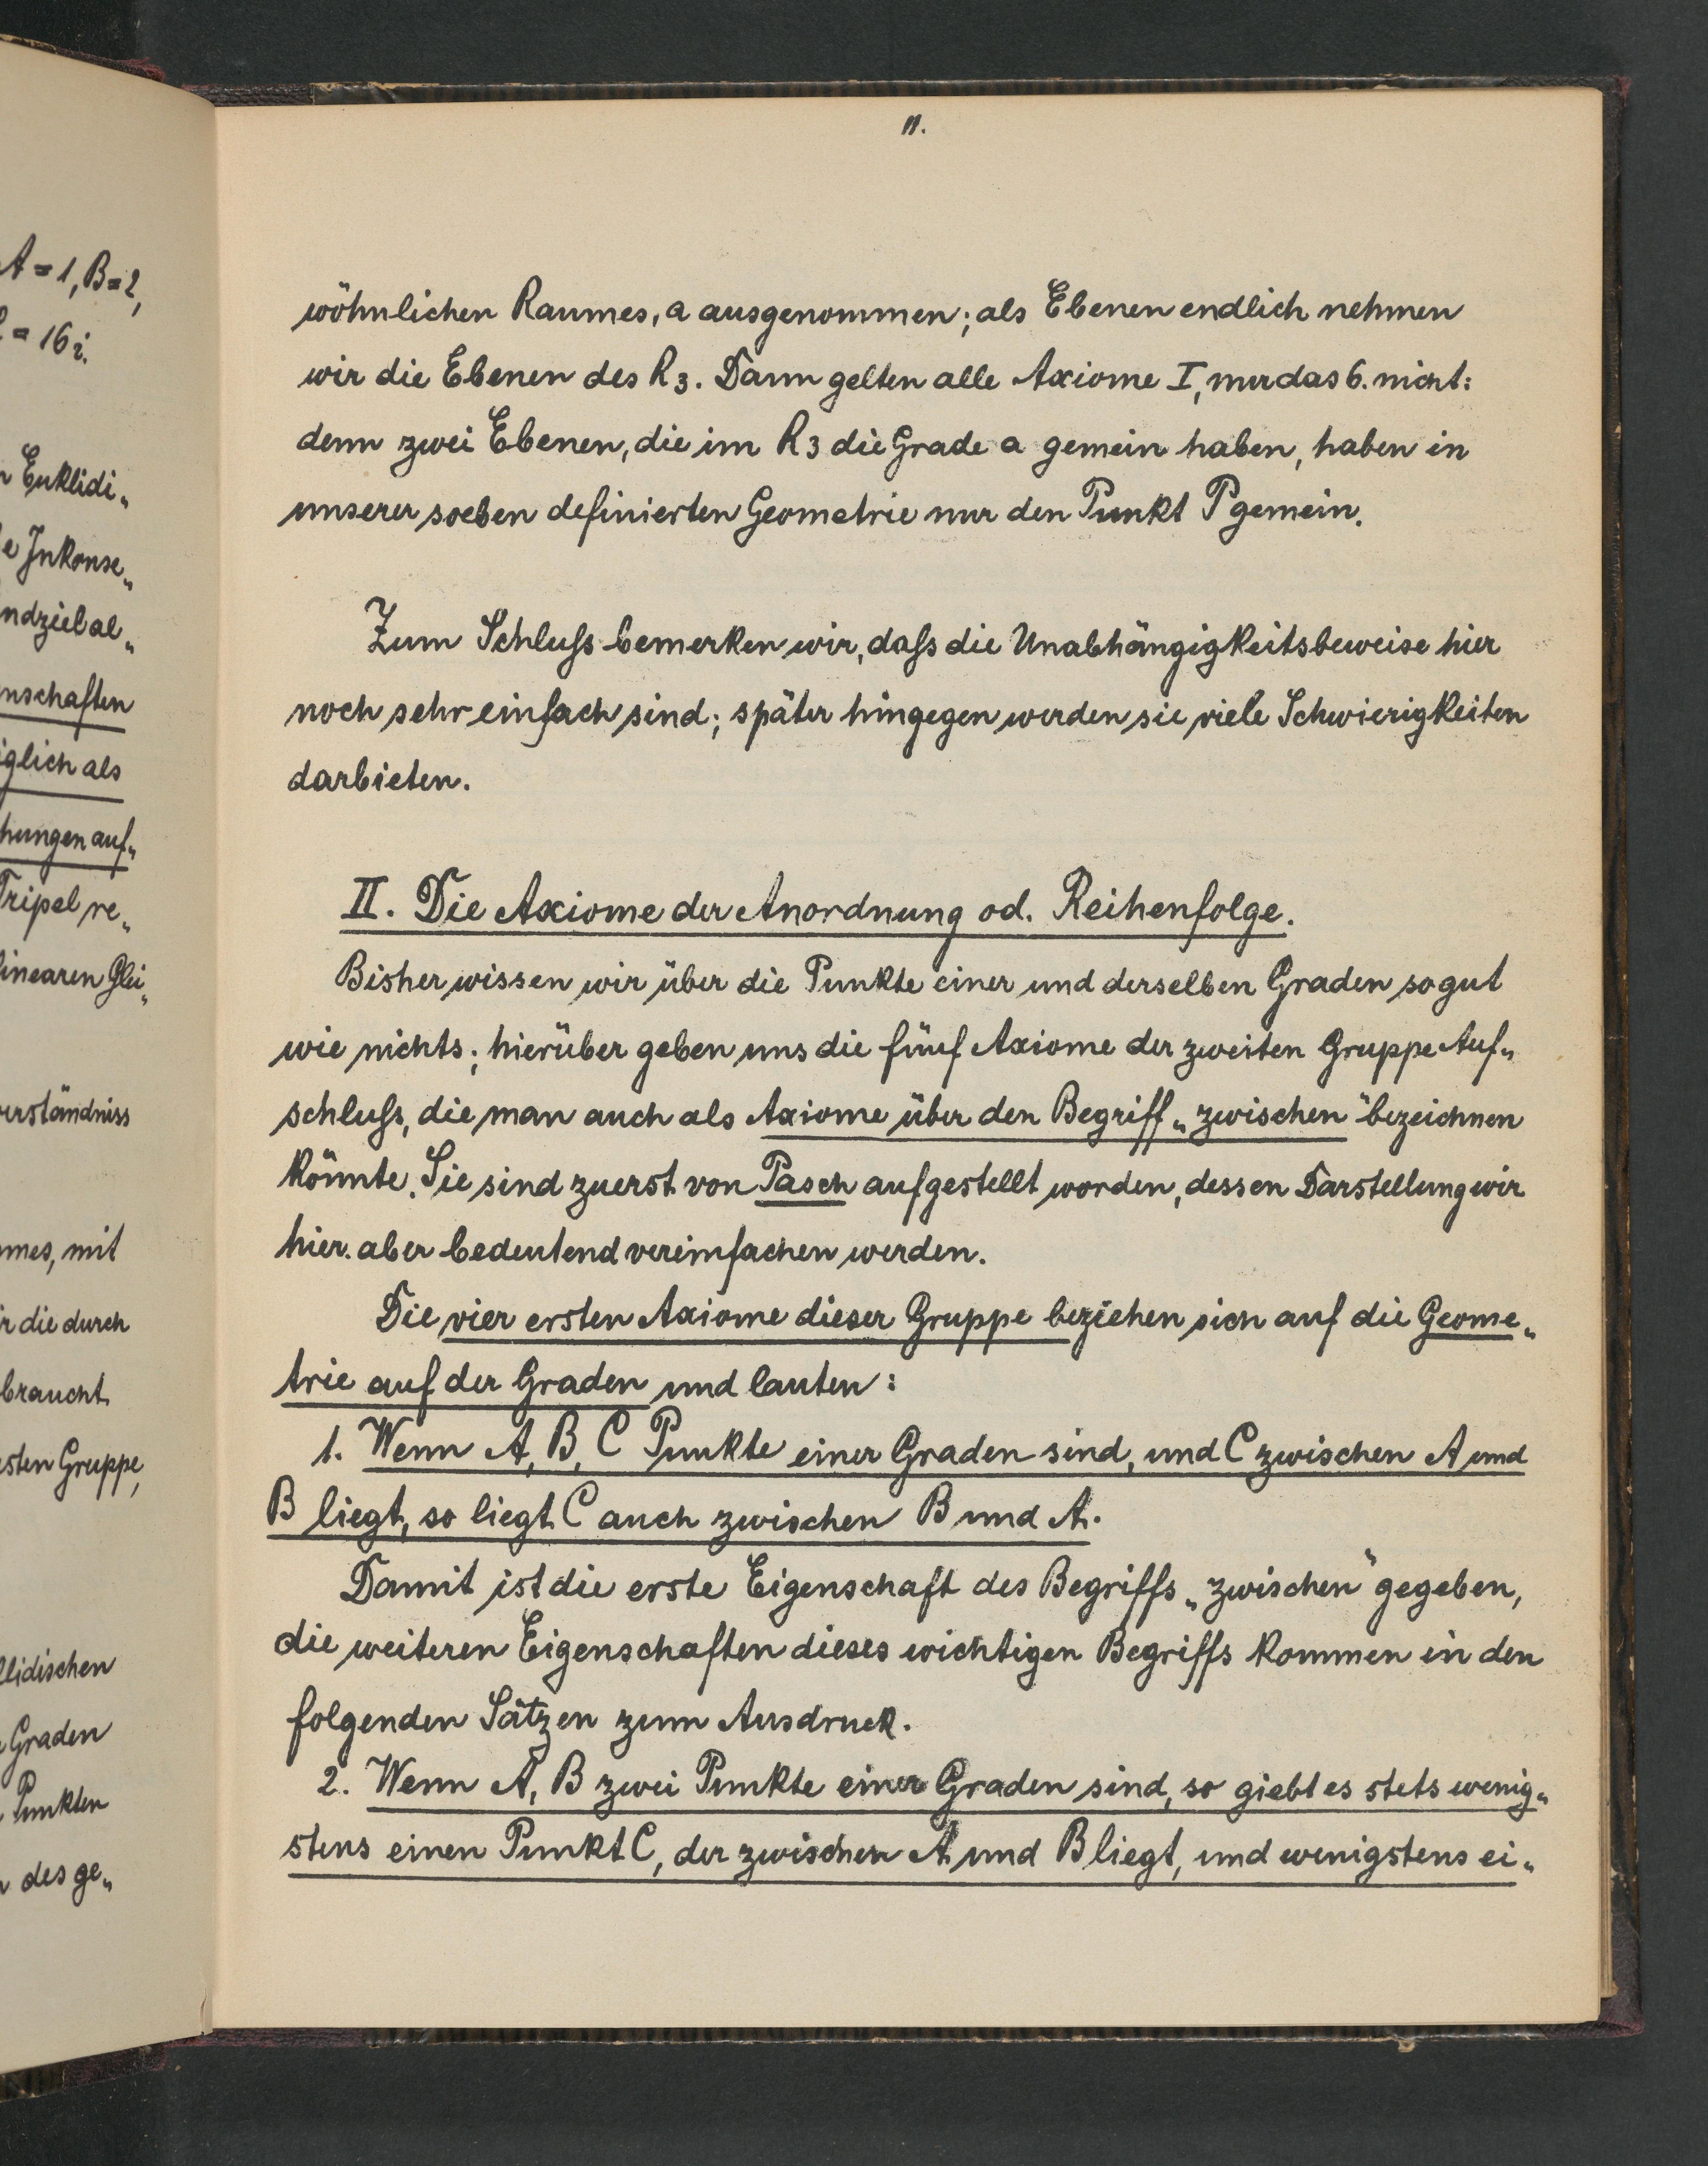 A = 1, B = 2,
= 16 i.
Euklidi„
e Inkonse„
ndziel al„
nschaften
glich als
hungen auf„
Tripel re„
linearen Glei„
verständniss
mes, mit
r die durch
braucht
sten Gruppe,
lidischen
Graden
Punkten
des ge„
11.
wöhnlichen Raumes, a ausgenommen; als Ebenen endlich nehmen
wir die Ebenen des R3. Dann gelten alle Axiome I, nur das 6. nicht:
denn zwei Ebenen, die im R3 die Grade a gemein haben, haben in
unserer soeben definierten Geometrie nur den Punkt P gemein.
Zum Schluſs bemerken wir, daſs die Unabhängigkeitsbeweise hier
noch sehr einfach sind; später hingegen werden sie viele Schwierigkeiten
darbieten.
II. Die Axiome der Anordnung od. Reihenfolge.
Bisher wissen wir über die Punkte einer und derselben Graden so gut
wie nichts; hierüber geben uns die fünf Axiome der zweiten Gruppe Auf„
schluſs, die man auch als Axiome über den Begriff „zwischen" bezeichnen
könnte. Sie sind zuerst von Pasch aufgestellt worden, dessen Darstellung wir
hier aber bedeutend vereinfachen werden.
Die vier ersten Axiome dieser Gruppe beziehen sich auf die Geome„
trie auf der Graden und lauten:
1. Wenn A, B, C Punkte einer Graden sind, und C zwischen A und
B liegt, so liegt C auch zwischen B und A.
Damit ist die erste Eigenschaft des Begriffs „zwischen" gegeben,
die weiteren Eigenschaften dieses wichtigen Begriffs kommen in den
folgenden Sätzen zum Ausdruck.
2. Wenn A, B zwei Punkte einer Graden sind, so giebt es stets wenig„
stens einen Punkt C, der zwischen A und B liegt, und wenigstens ei„